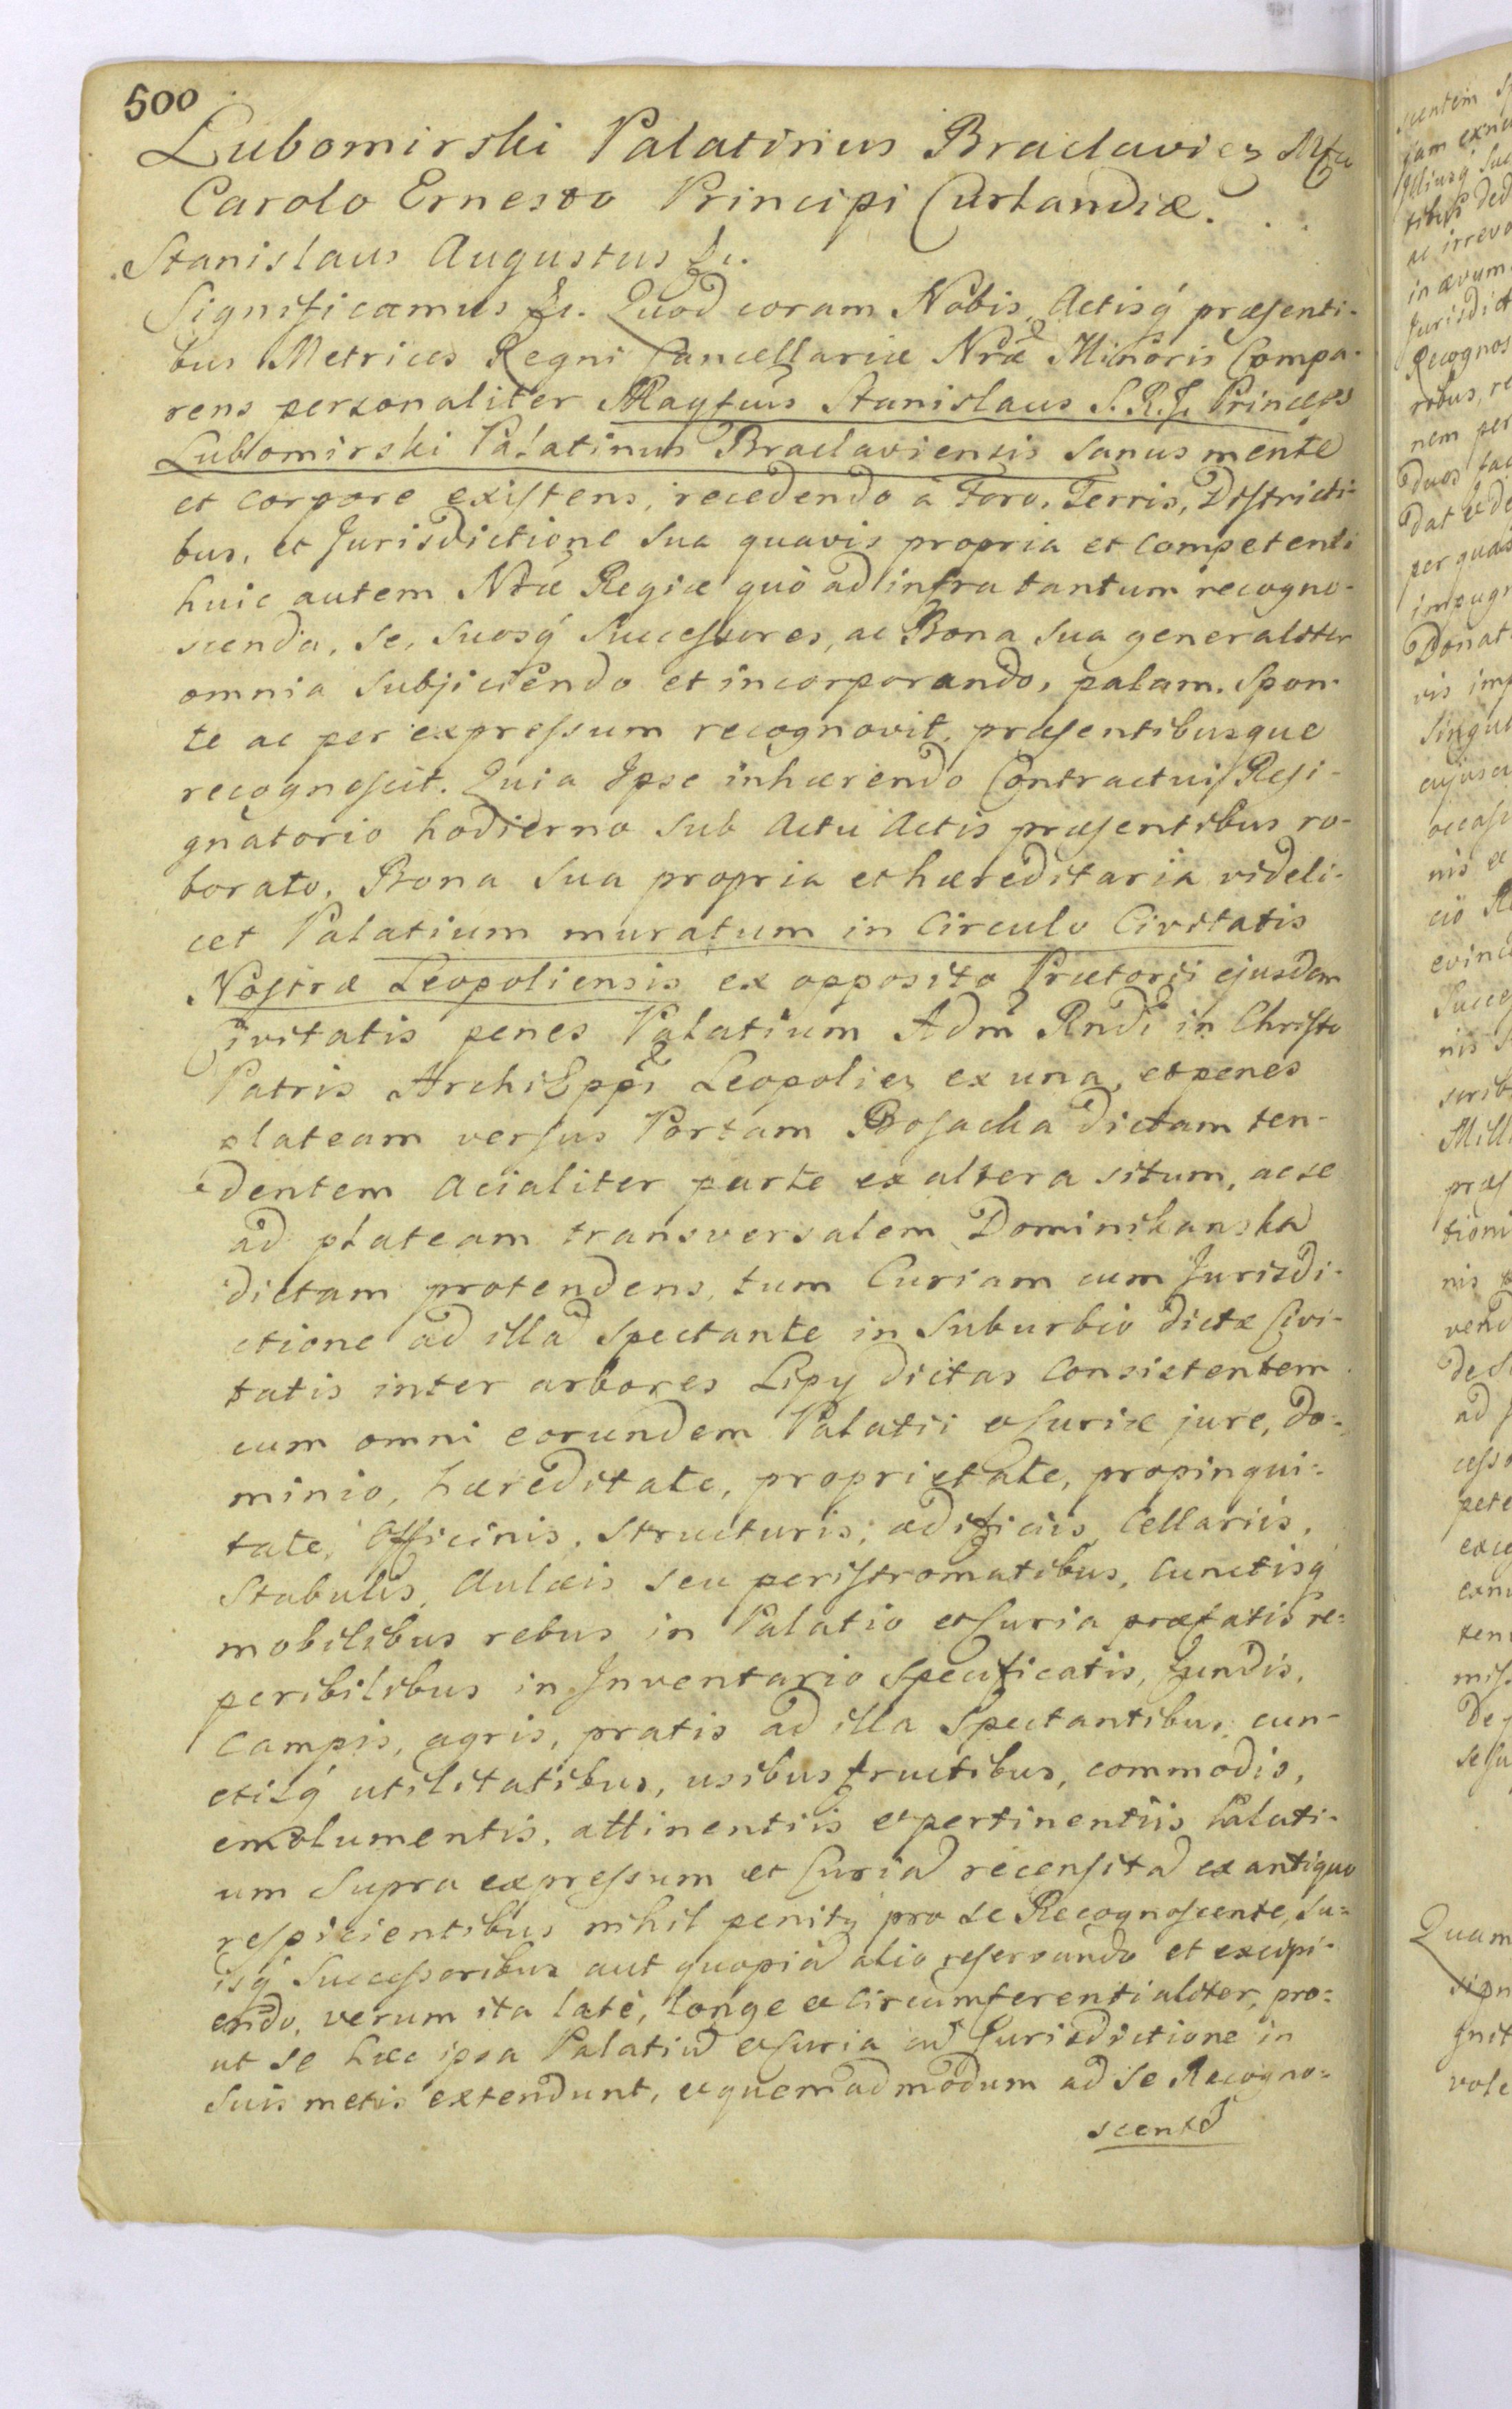 500
Lubomirski Palatinus Braclavien Mfco
Carolo Ernesto Principi Curlandiæ.
Stanislaus Augustus &c.
Significamus &c. Quod coram Nobis, Actisq́ præsenti-
bus Metrices Regni Cancellariæ Nræ Minoris Compa-
rens personaliter Magfcus Stanislaus S. R. I. Princeps
Lubomirski Palatinus Braclaviensis sanus mente
et corpore existens, recedendo à Foro, Terris, Districti-
bus, et Jurisdictione sua quavis propria et competenti
huic autem Nræ Regiæ quò ad infra tantum recogno-
scenda, se, suosq́ Successores, ac Bona sua generaliter
omnia subjiciendo et incorporando, palam. Spon-
te ac per expressum recognovit, præsentibusque
recognoscit. Quia Ipse inhærendo Contractui Resi-
gnatorio hodierno sub actu Actis præsentibus ro-
borato, Bona sua propria et hæreditaria videli-
cet Palatium muratum in Circulo Civitatis
Nostræ Leopoliensis ex opposito Prætorii ejusdem
Civitatis penes Palatium Adm Rndi in Christo
Patris ArchiEppi Leopolien ex una, et penes
plateam versus Portam Bosacka dictam ten-
dentem acialiter parte ex altera situm, ac se
ad plateam transversalem Dominikanska
dictam protendens, tum Curiam cum Jurisdi-
ctione ad illã spectante in suburbio dictæ Civi-
tatis inter arbores Lipy dictas consistentem
cum omni eorundem Palatii et Curiæ jure, do-
minio, hæreditate, proprietate, propinqui-
tate, Officinis, structuris, ædificiis, Cellariis,
Stabulis, Aulæis seu peristromatibus, cunctisq́
mobilibus rebus in Palatio et Curia præfatis re-
peribilibus in Inventario specificatis, fundis,
Campis, agris, pratis ad illa spectantibus, cun-
ctisq́ utilitatibus, usibus fructibus, commodis,
emolumentis, attinentiis et pertinentiis Palati-
um supra expressum et Curiã recensitã ex antiquo
respicientibus nihil penitq pro se Recognoscente, su-
isq́ Successoribus aut quopiã alio reservando et excipi-
endo, verum ita latè, longe et circumferentialiter, pro-
ut se hæc ipsa Palatiũ et Curia cũ Jurisdictione in
suis metis extendunt, et quemadmodum ad se Recogno-
scentẽ